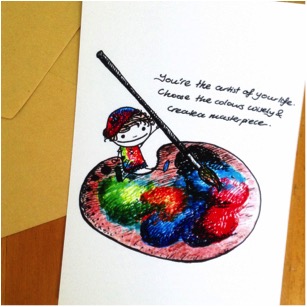 You're the artist of your life.
Choose the colours wisely &
Create a masterpiece.